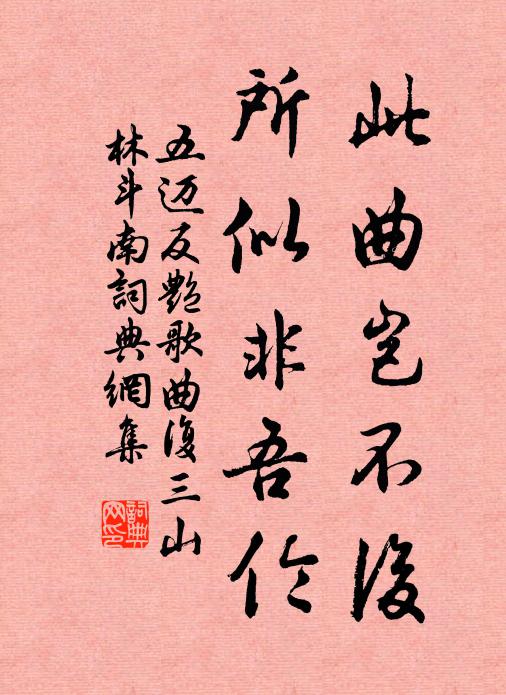 此曲岂不复
所似非吾伦
五迈反艷歌曲復三山
林斗南詞典網集
詞典网印